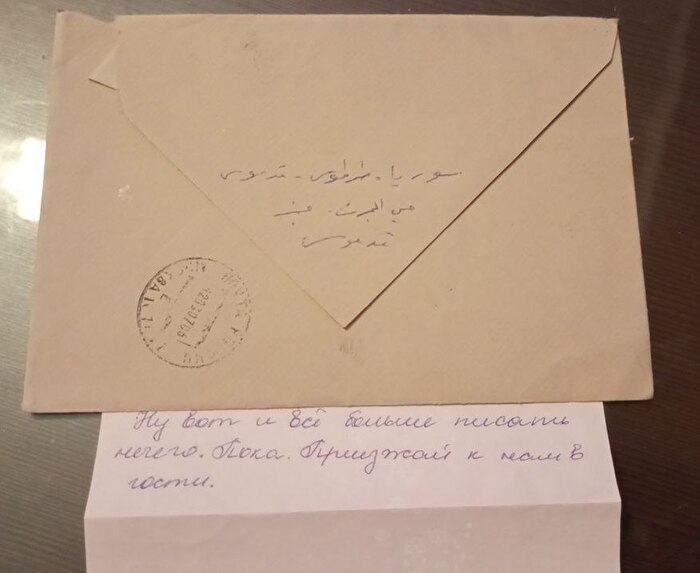 سوريا - طرطوس - قدموس
قدموس
Ну вот и всё больше писать
нечего. Пока. Приизжай к нам в
гости.